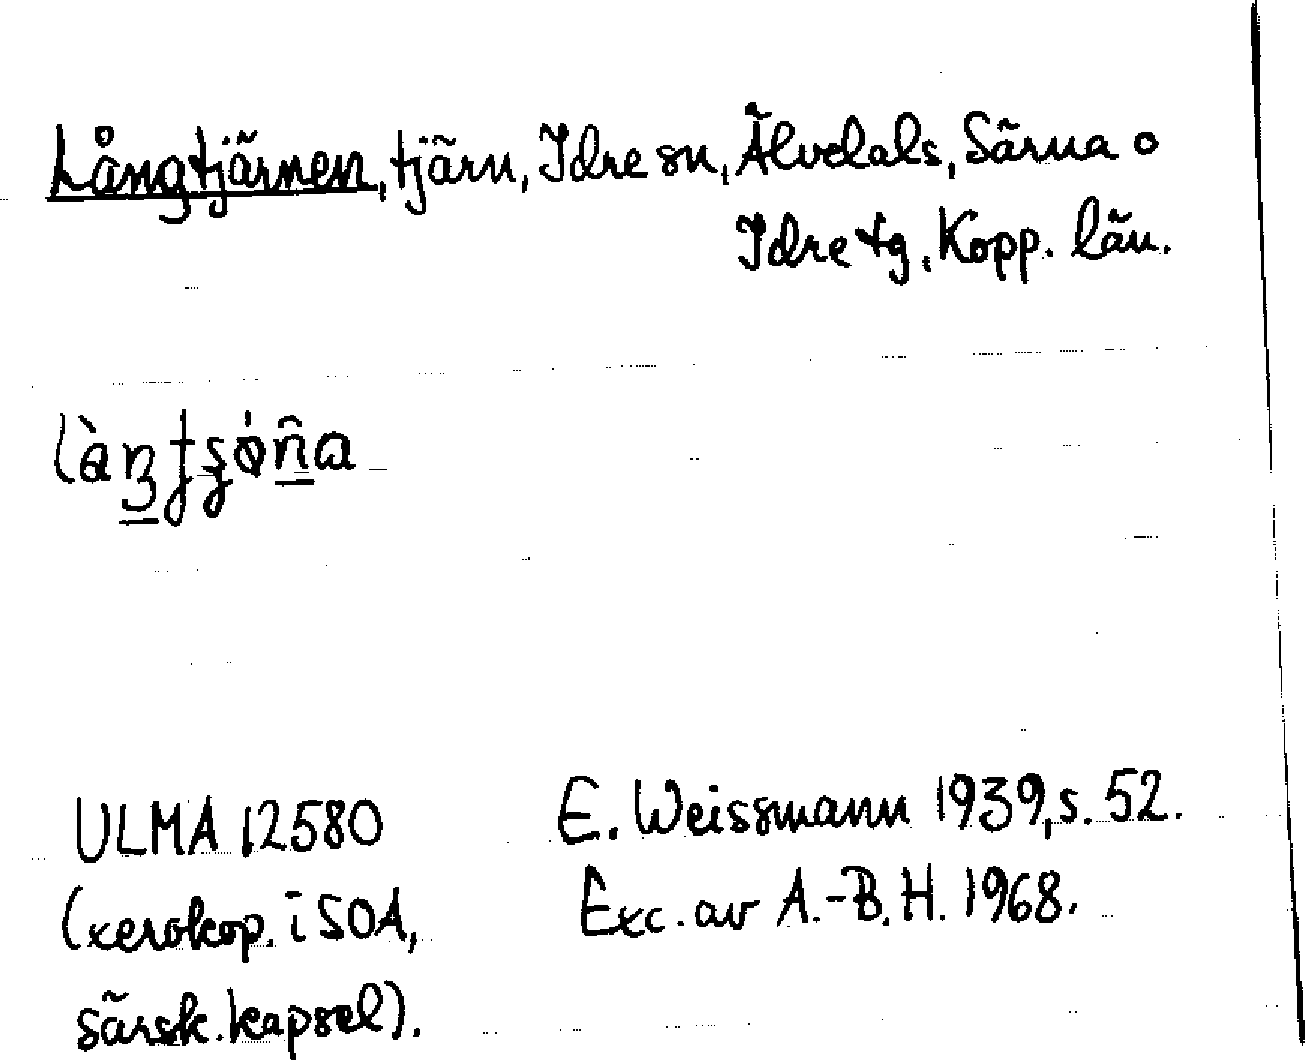 Långtjärnen, tjärn, Idre sn, Älvdals, Särna o
Idre tg, Kopp. län.
ULMA 12580
(xerokop. i SOA,
särsk. kapsel).
E. Weissmann 1939, s. 52.
Exc. av A.-B. H. 1968.